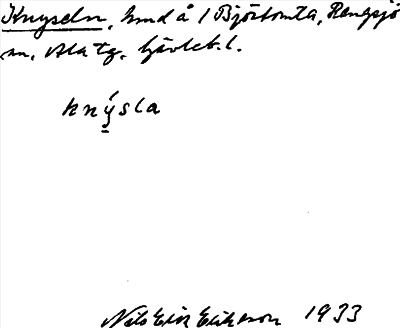 Knyseln, hmd å 1 Björtomta, Rengsjö
sn, Ala tg. Gävleb. l.
knýsla
Nils Erik Eriksson 1933